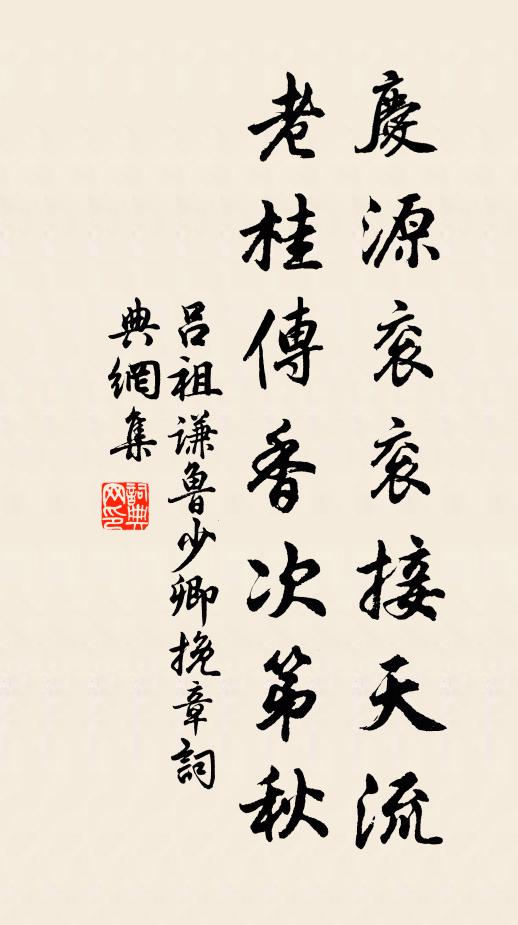 慶源衮衮接天流
老桂傳香次第秋
呂祖謙魯少卿挽章詞
典網集
詞典
网印